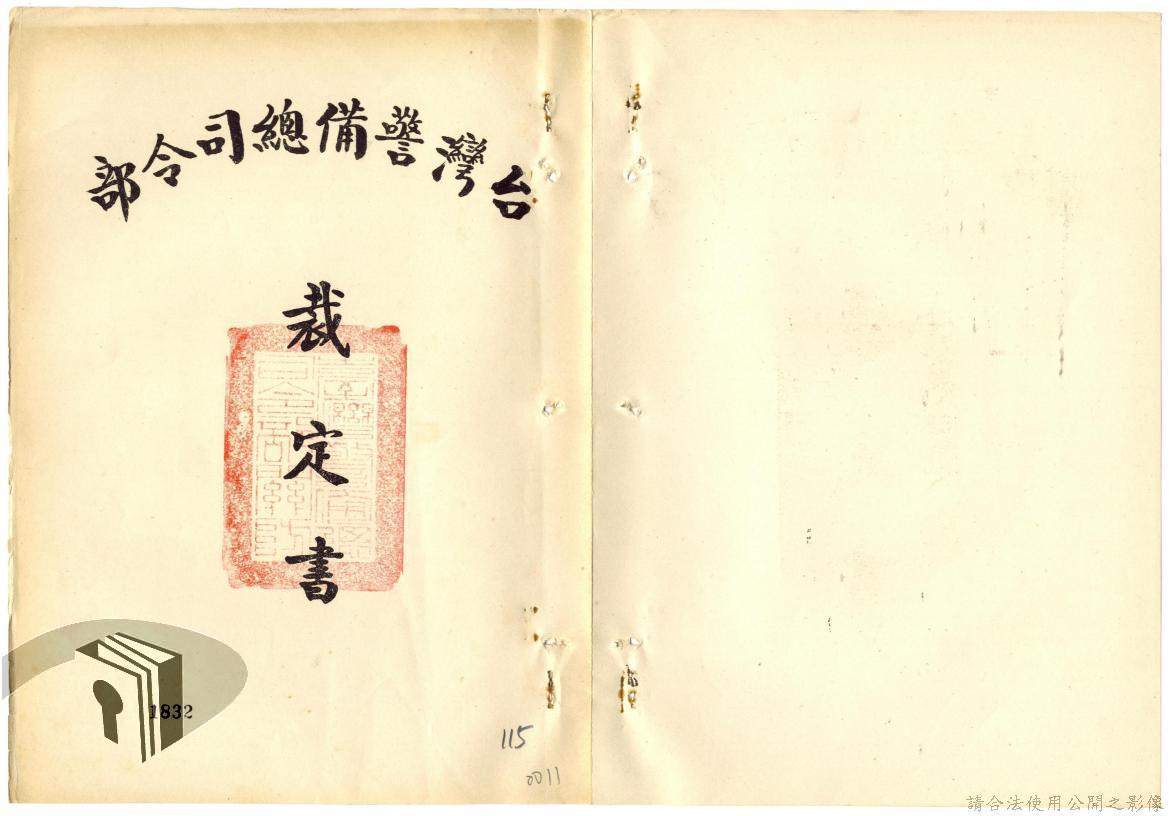 台灣警備總司令部
裁定書
1832
115
0011
請合法使用公開之影像